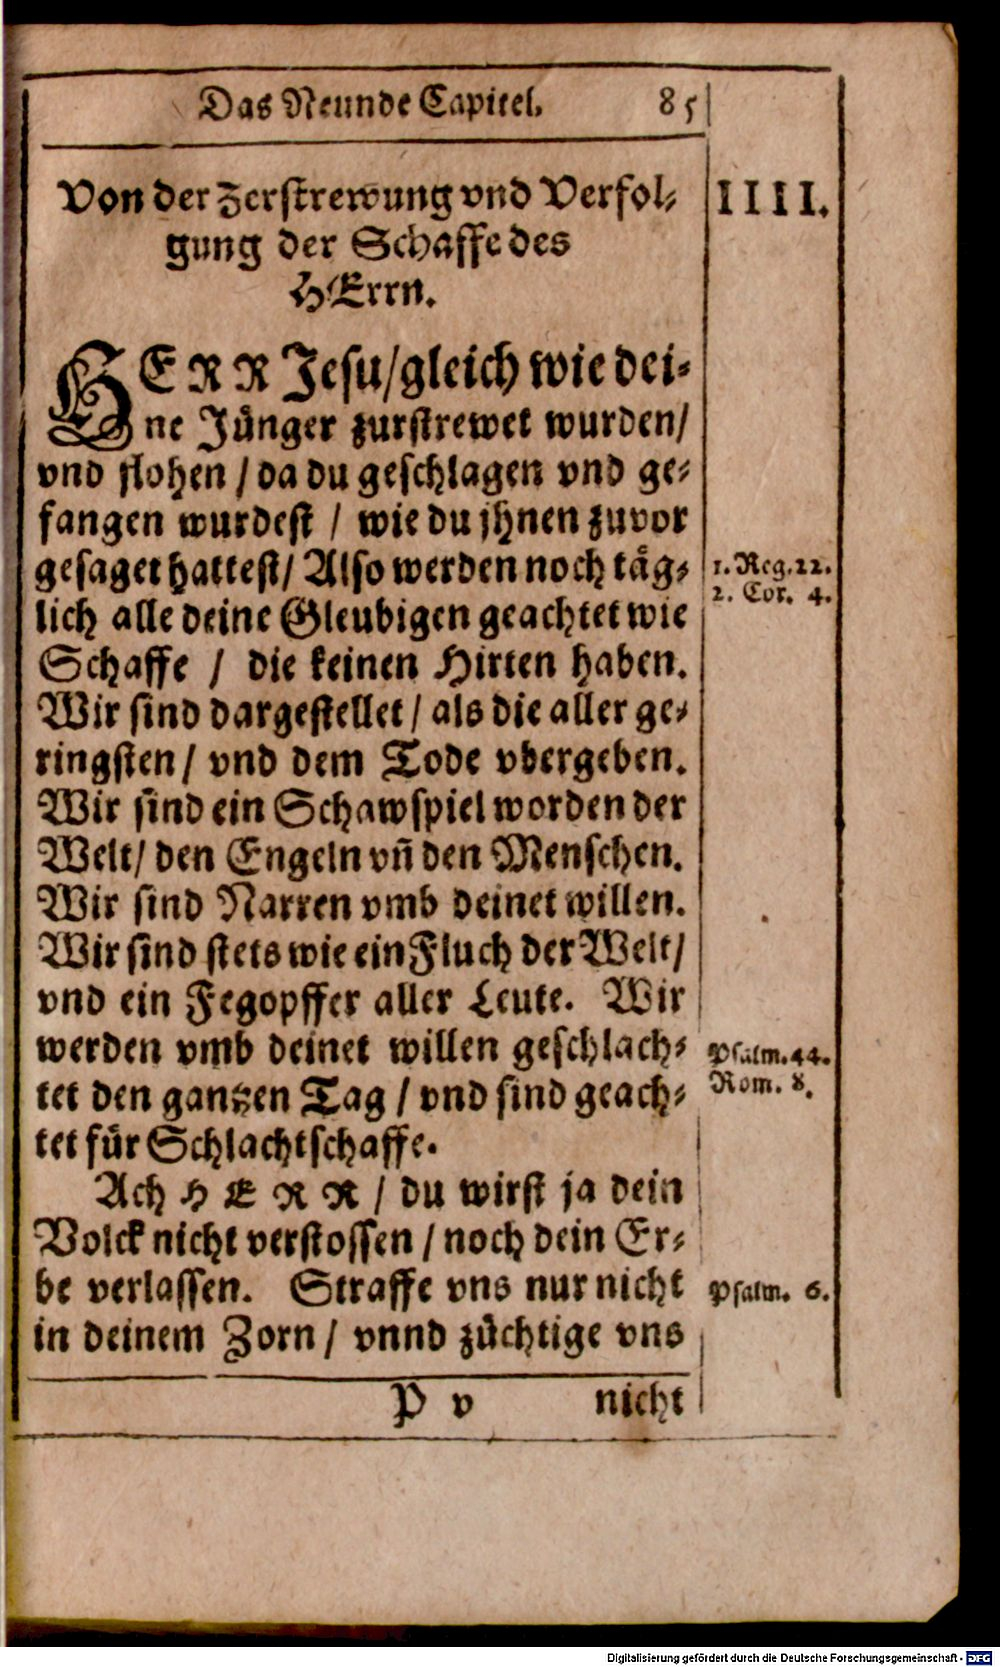 Das Neunde Capitel. 85
Von der Zerstrewung vnd Verfol- IIII.
gung der Schaffe des
HErrn.
HERR Jesu/gleich wie dei-
ne Jünger zurstrewet wurden/
vnd flohen / da du geschlagen vnd ge-
fangen wurdest / wie du jhnen zuvor
gesaget hattest/ Also werden noch täg- 1. Reg. 22.
lich alle deine Gleubigen geachtet wie 2. Cor. 4.
Schaffe / die keinen Hirten haben.
Wir sind dargestellet / als die aller ge-
ringsten / vnd dem Tode vbergeben.
Wir sind ein Schawspiel worden der
Welt/ den Engeln vñ den Menschen.
Wir sind Narren vmb deinet willen.
Wir sind stets wie ein Fluch der Welt/
vnd ein Fegopffer aller Leute. Wir
werden vmb deinet willen geschlach- Psalm. 44.
tet den gantzen Tag / vnd sind geach- Rom. 8.
tet für Schlachtschaffe.
Ach HERR / du wirst ja dein
Volck nicht verstossen / noch dein Er-
be verlassen. Straffe vns nur nicht Psalm. 6.
in deinem Zorn / vnnd züchtige vns
P v nicht
Digitalisierung gefördert durch die Deutsche Forschungsgemeinschaft - DFG